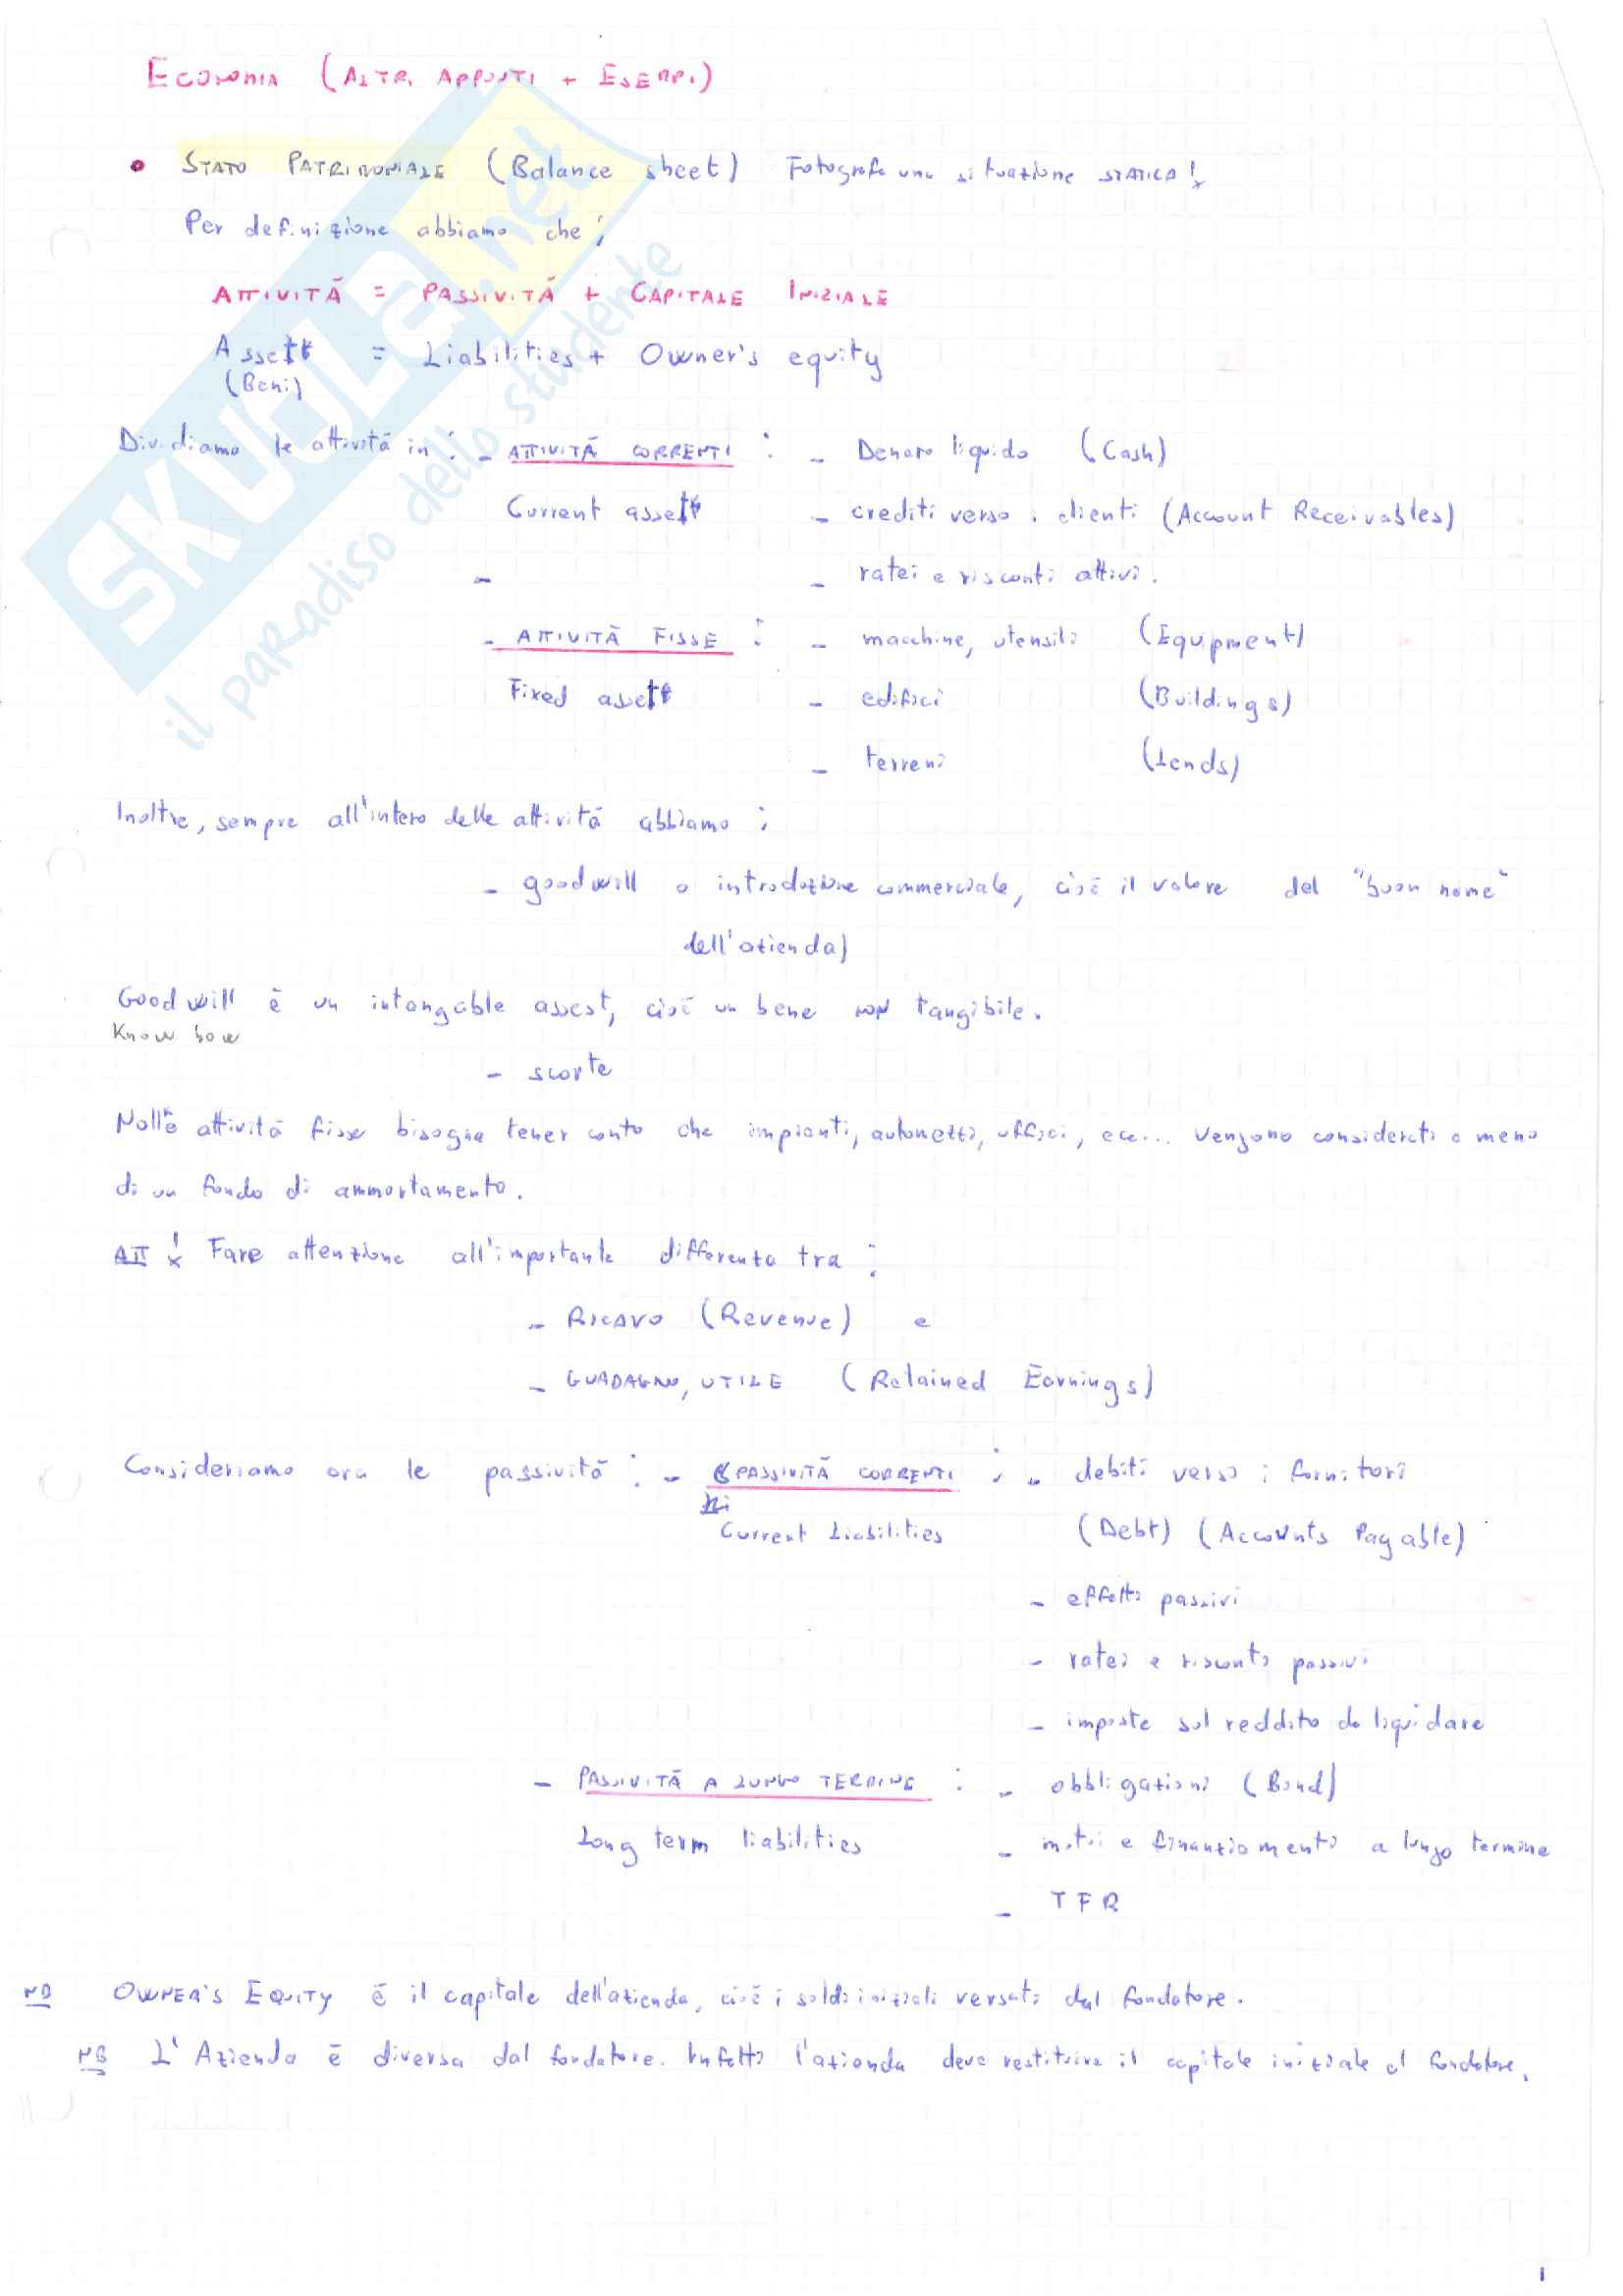 ECONOMIA (ALTRI APPUNTI + ESEMPI)
• STATO PATRIMONIALE (Balance sheet) Fotografa una situazione STATICA!
Per definizione abbiamo che:
ATTIVITÀ = PASSIVITÀ + CAPITALE INIZIALE
Assett = Liabilities + Owner's equity
(Beni)
Dividiamo le attività in: - ATTIVITÀ CORRENTI: - Denaro liquido (Cash)
Current assett - crediti verso i clienti (Account Receivables)
- - ratei e risconti attivi.
- ATTIVITÀ FISSE: - macchine, utensili (Equipment)
Fixed assett - edifici (Buildings)
- terreni (Lands)
Inoltre, sempre all'intero delle attività abbiamo:
- goodwill o introduzione commerciale, cioè il valore del "buon nome"
dell'azienda)
Goodwill è un intangable assest, cioè un bene NON tangibile.
Know how
- scorte
Nelle attività fisse bisogna tener conto che impianti, automezzi, uffici, ecc... vengono considerati a meno
di un fondo di ammortamento.
ATT! Fare attenzione all'importante differenza tra:
- RICAVO (Revenue) e
- GUADAGNO, UTILE (Retained Earnings)
Consideriamo ora le passività: - PASSIVITÀ CORRENTI: - debiti verso i fornitori
Current Liabilities (Debt) (Accounts Payable)
- effetti passivi
- ratei e risconti passivi
- imposte sul reddito da liquidare
- PASSIVITÀ A LUNGO TERMINE: - obbligazioni (Bond)
Long term liabilities - mutui e finanziamenti a lungo termine
- TFR
NB OWNER'S EQUITY è il capitale dell'azienda, cioè i soldi iniziali versati dal fondatore.
NB L'Azienda è diversa dal fondatore. Infatti l'azienda deve restituire il capitale iniziale al fondatore.
SKUOLA.net
il paradiso dello studente
1